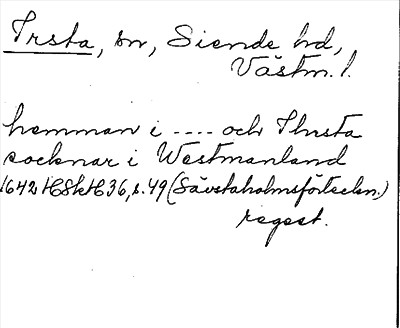 Irsta, sn, Siende hd,
Västm. l.
hemman i .... och Thista
socknar i Westmanland
1642 HSH 36, s. 49 (Sävstaholmsförteckn.)
regest.